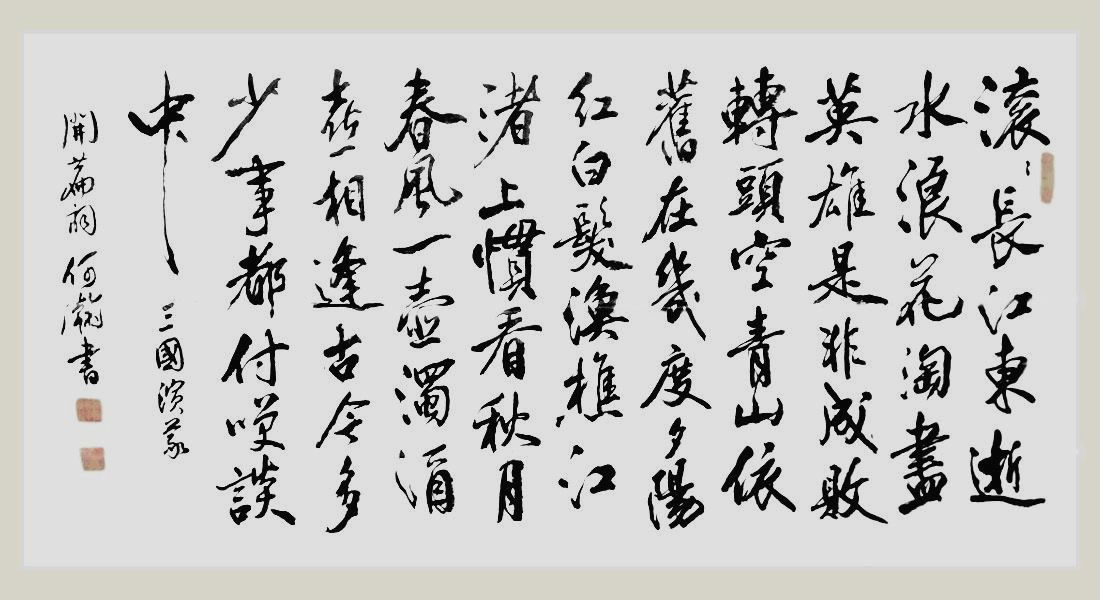 滚〻長江東逝
水浪花淘盡
英雄是非成敗
轉頭空青山依
舊在幾度夕陽
红白髮漁樵江
渚上慣看秋月
春風一壺濁酒
喜相逢古今多
少事都付咲談
中
三國演義
開篇詞 何瀧書